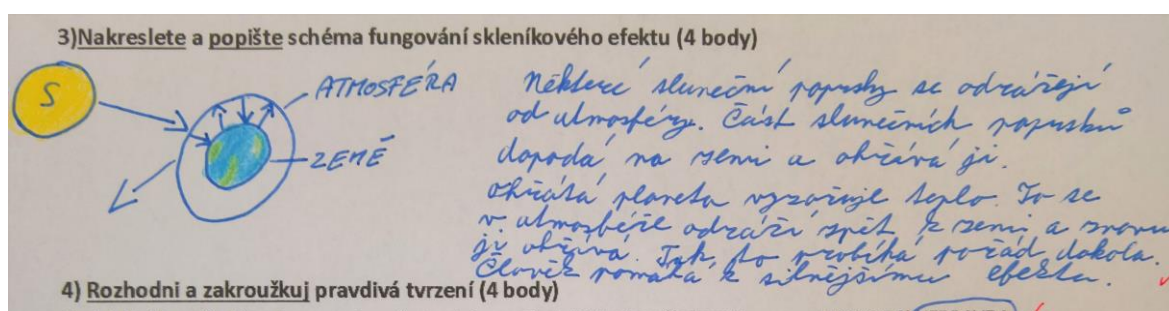 3)Nakreslete a popište schéma fungování skleníkového efektu (4 body)
S
ATMOSFÉRA
ZEMĚ
Některé sluneční paprsky se odrážejí
od atmosféry. Část slunečních paprsků
dopadá na zemi a ohřívá ji.
Ohřátá planeta vyzařuje teplo. To se
v atmosféře odráží zpět k zemi a znovu
ji ohřívá. Tak to probíhá pořád dokola.
Člověk pomáhá k silnějšímu efektu.
4) Rozhodni a zakroužkuj pravdivá tvrzení (4 body)